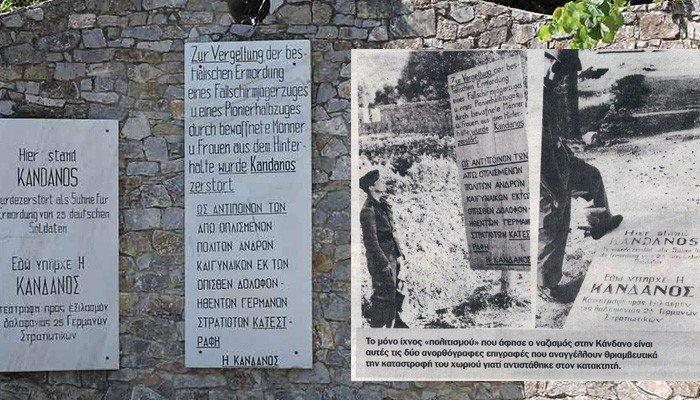 Hier stand
KANDANOS
urdezerstort als Sühne für
Ermordung von 25 deutschen
Soldaten
Εδώ υπήρχε Η
ΚΑΝΔΑΝΟΣ
ατεστράφη προς εξιλασμόν
δολοφονίας 25 Γερμανών
Στρατιωτικών
Zur Vergeltung der bes-
tialischen Ermordung
eines Fallschirmjägerzuges
u. eines Pionierhalbzuges
durch bewaffnete Männer
u Frauen aus dem Hinter-
halte wurde Kandanos
zerstort
ΩΣ ΑΝΤΙΠΟΙΝΟΝ ΤΩΝ
ΑΠΟ ΟΠΛΙΣΜΕΝΟΝ
ΠΟΛΙΤΩΝ ΑΝΔΡΩΝ
ΚΑΙΓΥΝΑΙΚΩΝ ΕΚ ΤΩΝ
ΟΠΙΣΘΕΝ ΔΟΛΟΦΟΝ-
ΗΘΕΝΤΩΝ ΓΕΡΜΑΝΩΝ
ΣΤΡΑΤΙΩΤΩΝ ΚΑΤΕΣΤ-
ΡΑΦΗ
Η ΚΑΝΔΑΝΟΣ
Zur Vergeltung der bes-
tialischen Ermordung
eines Fallschirmjägerzuges
u. eines Pionierhalbzuges
durch bewaffnete Männer
u Frauen aus dem Hinter-
halte, wurde Kandanos
zerstört
ΩΣ ΑΝΤΙΠΟΙΝΟΝ ΤΩΝ
ΑΠΟ ΟΠΛΙΣΜΕΝΩΝ
ΠΟΛΙΤΩΝ ΑΝΔΡΩΝ
ΚΑΙΓΥΝΑΙΚΩΝ ΕΚ ΤΩΝ
ΟΠΙΣΘΕΝ ΔΟΛΟΦΟΝ-
ΗΘΕΝΤΩΝ ΓΕΡΜΑΝΩΝ
ΣΤΡΑΤΙΩΤΩΝ ΚΑΤΕΣ
ΡΑΦΗ
Η ΚΑΝΔΑΝΟΣ
Hier stand
KANDANOS
Εδώ υπήρχε Η
ΚΑΝΔΑΝΟΣ
Κατεστράφη προς εξιλασμόν
δολοφονίας 25 Γερμανών
Στρατιωτικών
Το μόνο ίχνος «πολιτισμού» που άφησε ο ναζισμός στην Κάνδανο είναι
αυτές τις δύο ανορθόγραφες επιγραφές που αναγγέλλουν θριαμβευτικά
την καταστροφή του χωριού γιατί αντιστάθηκε στον κατακτητή.